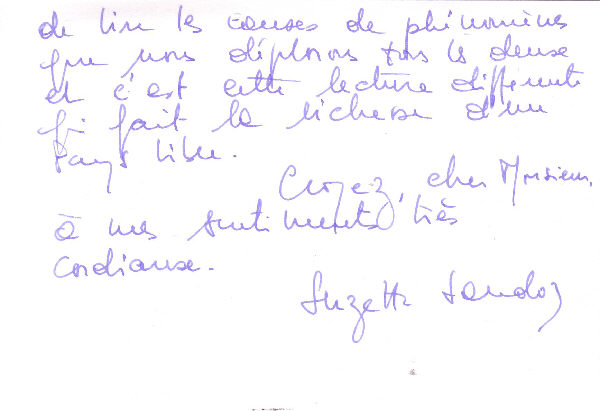 de lire les causes de phénomènes
que nous déplorons tous les deux
et c'est cette lecture différente
qui fait la richesse d'un
pays libre.
Croyez, cher Monsieur,
à mes sentiments très
cordiaux.
Suzette Sandoz